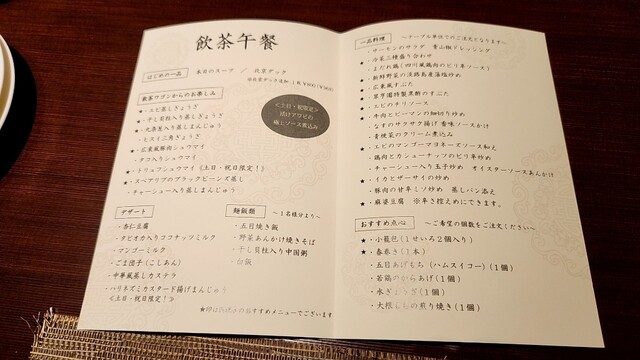 飲茶午餐
はじめの一品
本日のスープ ／ 北京ダック
飲茶ワゴンからのお楽しみ
★・エビ蒸しぎょうざ
★・干し貝柱入り蒸しぎょうざ
★・大海老入り蒸しまんじゅう
・ヒスイ三角ぎょうざ
★・広東風豚肉シュウマイ
・タコ入りシュウマイ
★・トリュフシュウマイ《土日・祝日限定！》
★・スペアリブのブラックビーンズ蒸し
・チャーシュー入り蒸しまんじゅう
≪土日・祝限定≫
揚げアワビの
極上ソース煮込み
デザート
・杏仁豆腐
・タピオカ入りココナッツミルク
・マンゴーミルク
・ごま団子(こしあん)
・中華風蒸しカステラ
・ハリネズミカスタード揚げまんじゅう
≪土日・祝日限定！≫
麺飯類 ～１名様分より～
・五目焼き飯
・野菜あんかけ焼きそば
・干し貝柱入り中国粥
・白飯
★印は当店のおすすめメニューでございます
一品料理 ～テーブル単位でのご注文となります～
・サーモンのサラダ 青山椒ドレッシング
★・冷菜三種盛り合わせ
★・よだれ鶏(四川風鶏肉のピリ辛ソース)
★・新鮮野菜の淡路島産藻塩炒め
★・広東風すぶた
★・翠亨園特製黒酢のすぶた
★・エビのチリソース
★・牛肉とピーマンの細切り炒め
・なすのサクサク揚げ 香味ソースかけ
・青梗菜のクリーム煮込み
★・エビのマンゴーマヨネーズソース和え
・鶏肉とカシューナッツのピリ辛炒め
・チャーシュー入り玉子炒め オイスターソースあんかけ
★・イカとザーサイの炒め
・豚肉の甘辛ミソ炒め 蒸しパン添え
★・麻婆豆腐 ※辛さ控えめにできます。
おすすめ点心 ～ご希望の個数をご注文ください～
★・小籠包(１せいろ２個入り)
★・春巻き(１本)
・五目あげもち (ハムスイコー)(１個)
・若鶏のからあげ(１個)
・水ぎょうざ(１個)
・大根もちの煎り焼き(１個)